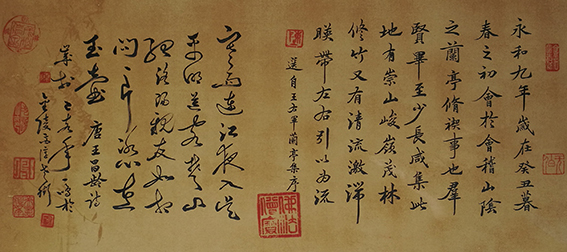 永和九年歲在癸丑暮
春之初會於會稽山陰
之蘭亭脩禊事也羣
賢畢至少長咸集此
地有崇山峻嶺茂林
修竹又有清流激湍
暎帶左右引以為流
選自王右軍蘭亭集序
寒雨連江夜入吴
平明送客楚山
孤洛陽親友如相
問一片冰心在
玉壺 唐王昌齡詩